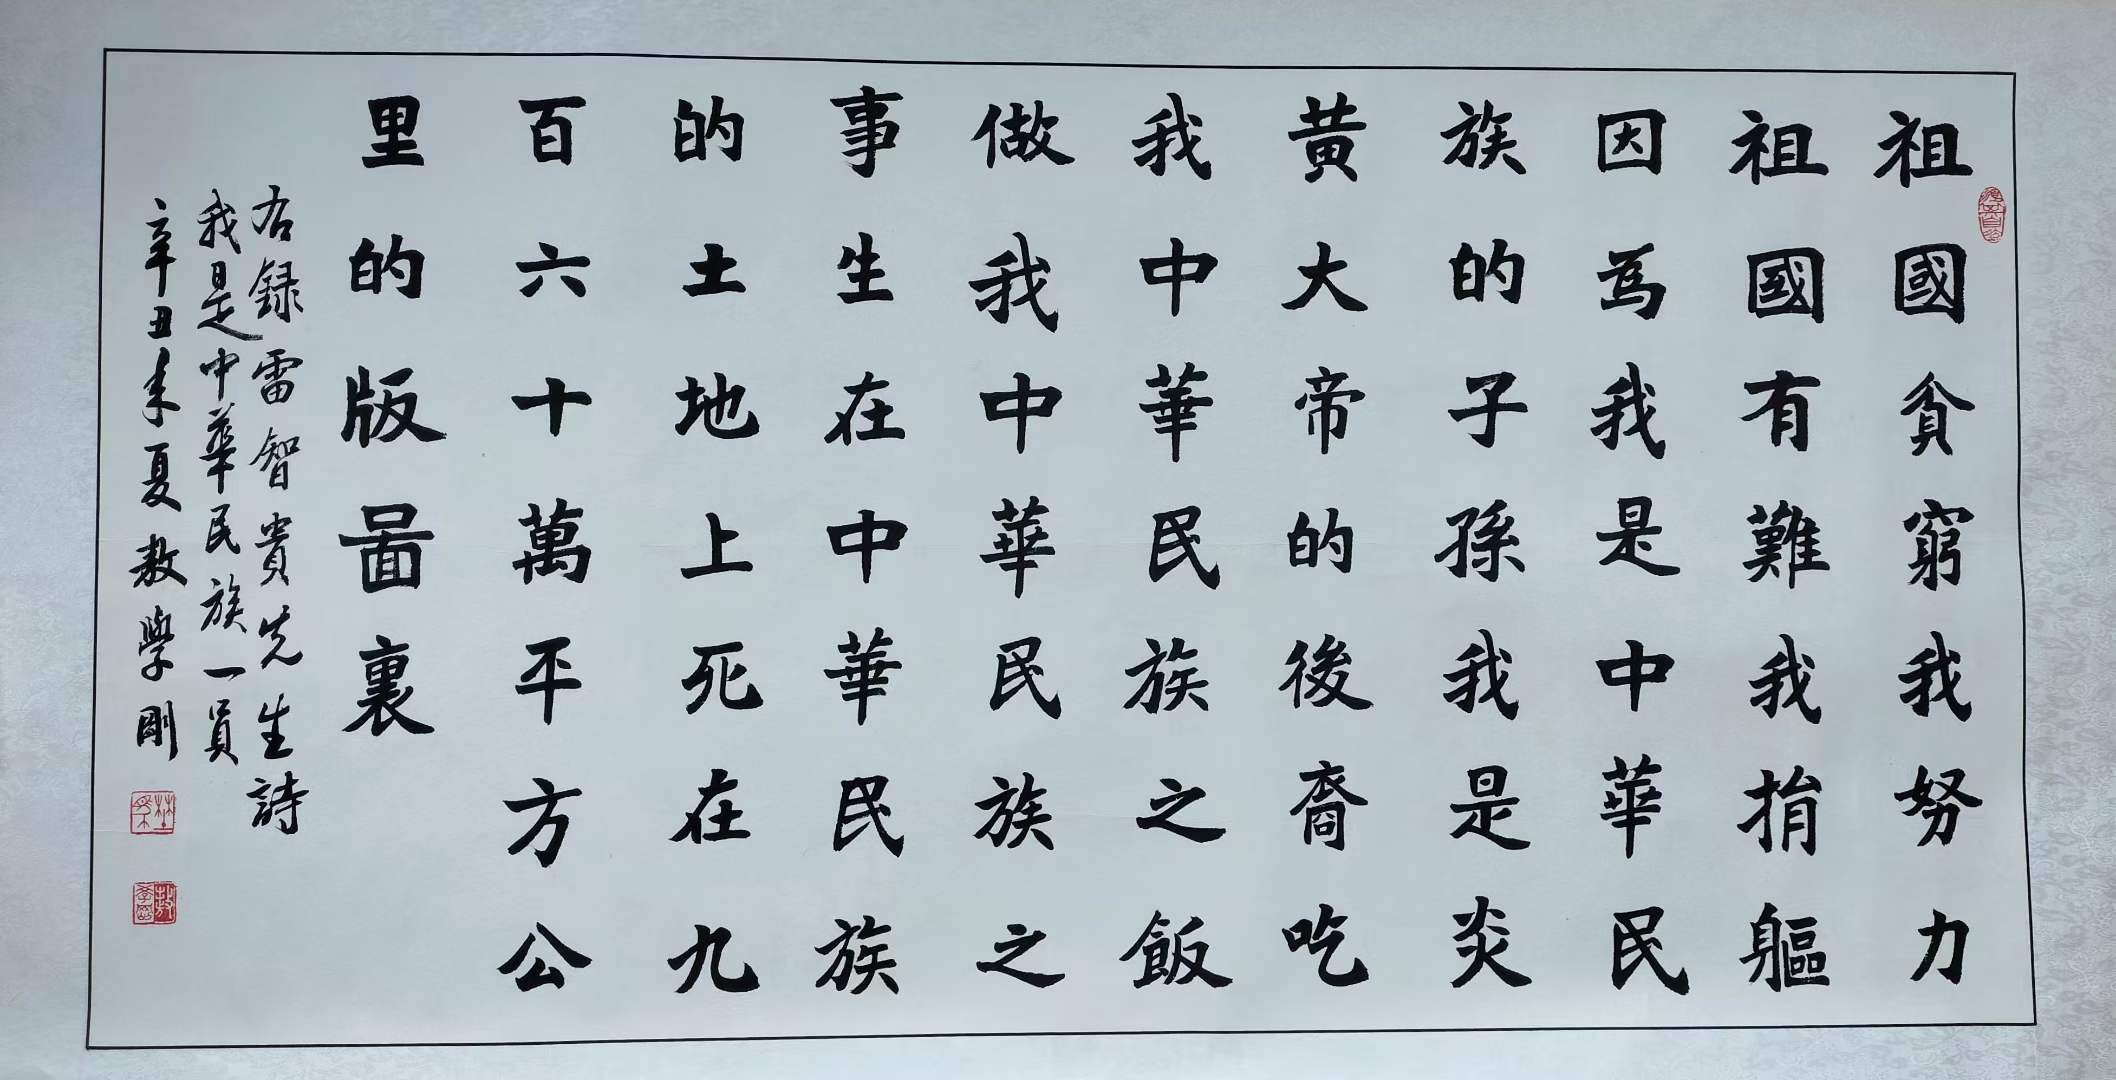 祖國貧窮我努力
祖國有難我捐軀
因為我是中華民
族的子孫我是炎
黃大帝的後裔吃
我中華民族之飯
做我中華民族之
事生在中華民族
的土地上死在九
百六十萬平方公
里的版圖裏
右録雷智貴先生詩
我是中華民族一員
辛丑年夏敖學剛